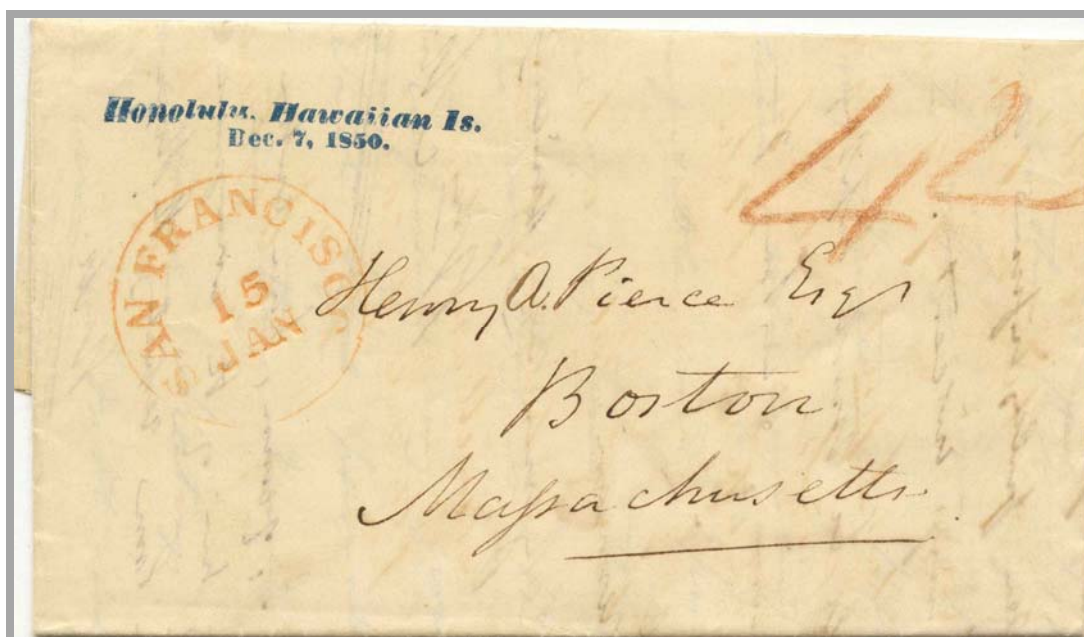 Honolulu, Hawaiian Is.
Dec. 7, 1850.
42
SAN FRANCISCO
15
JAN
Henry A. Pierce Esqr
Boston
Massachusetts.